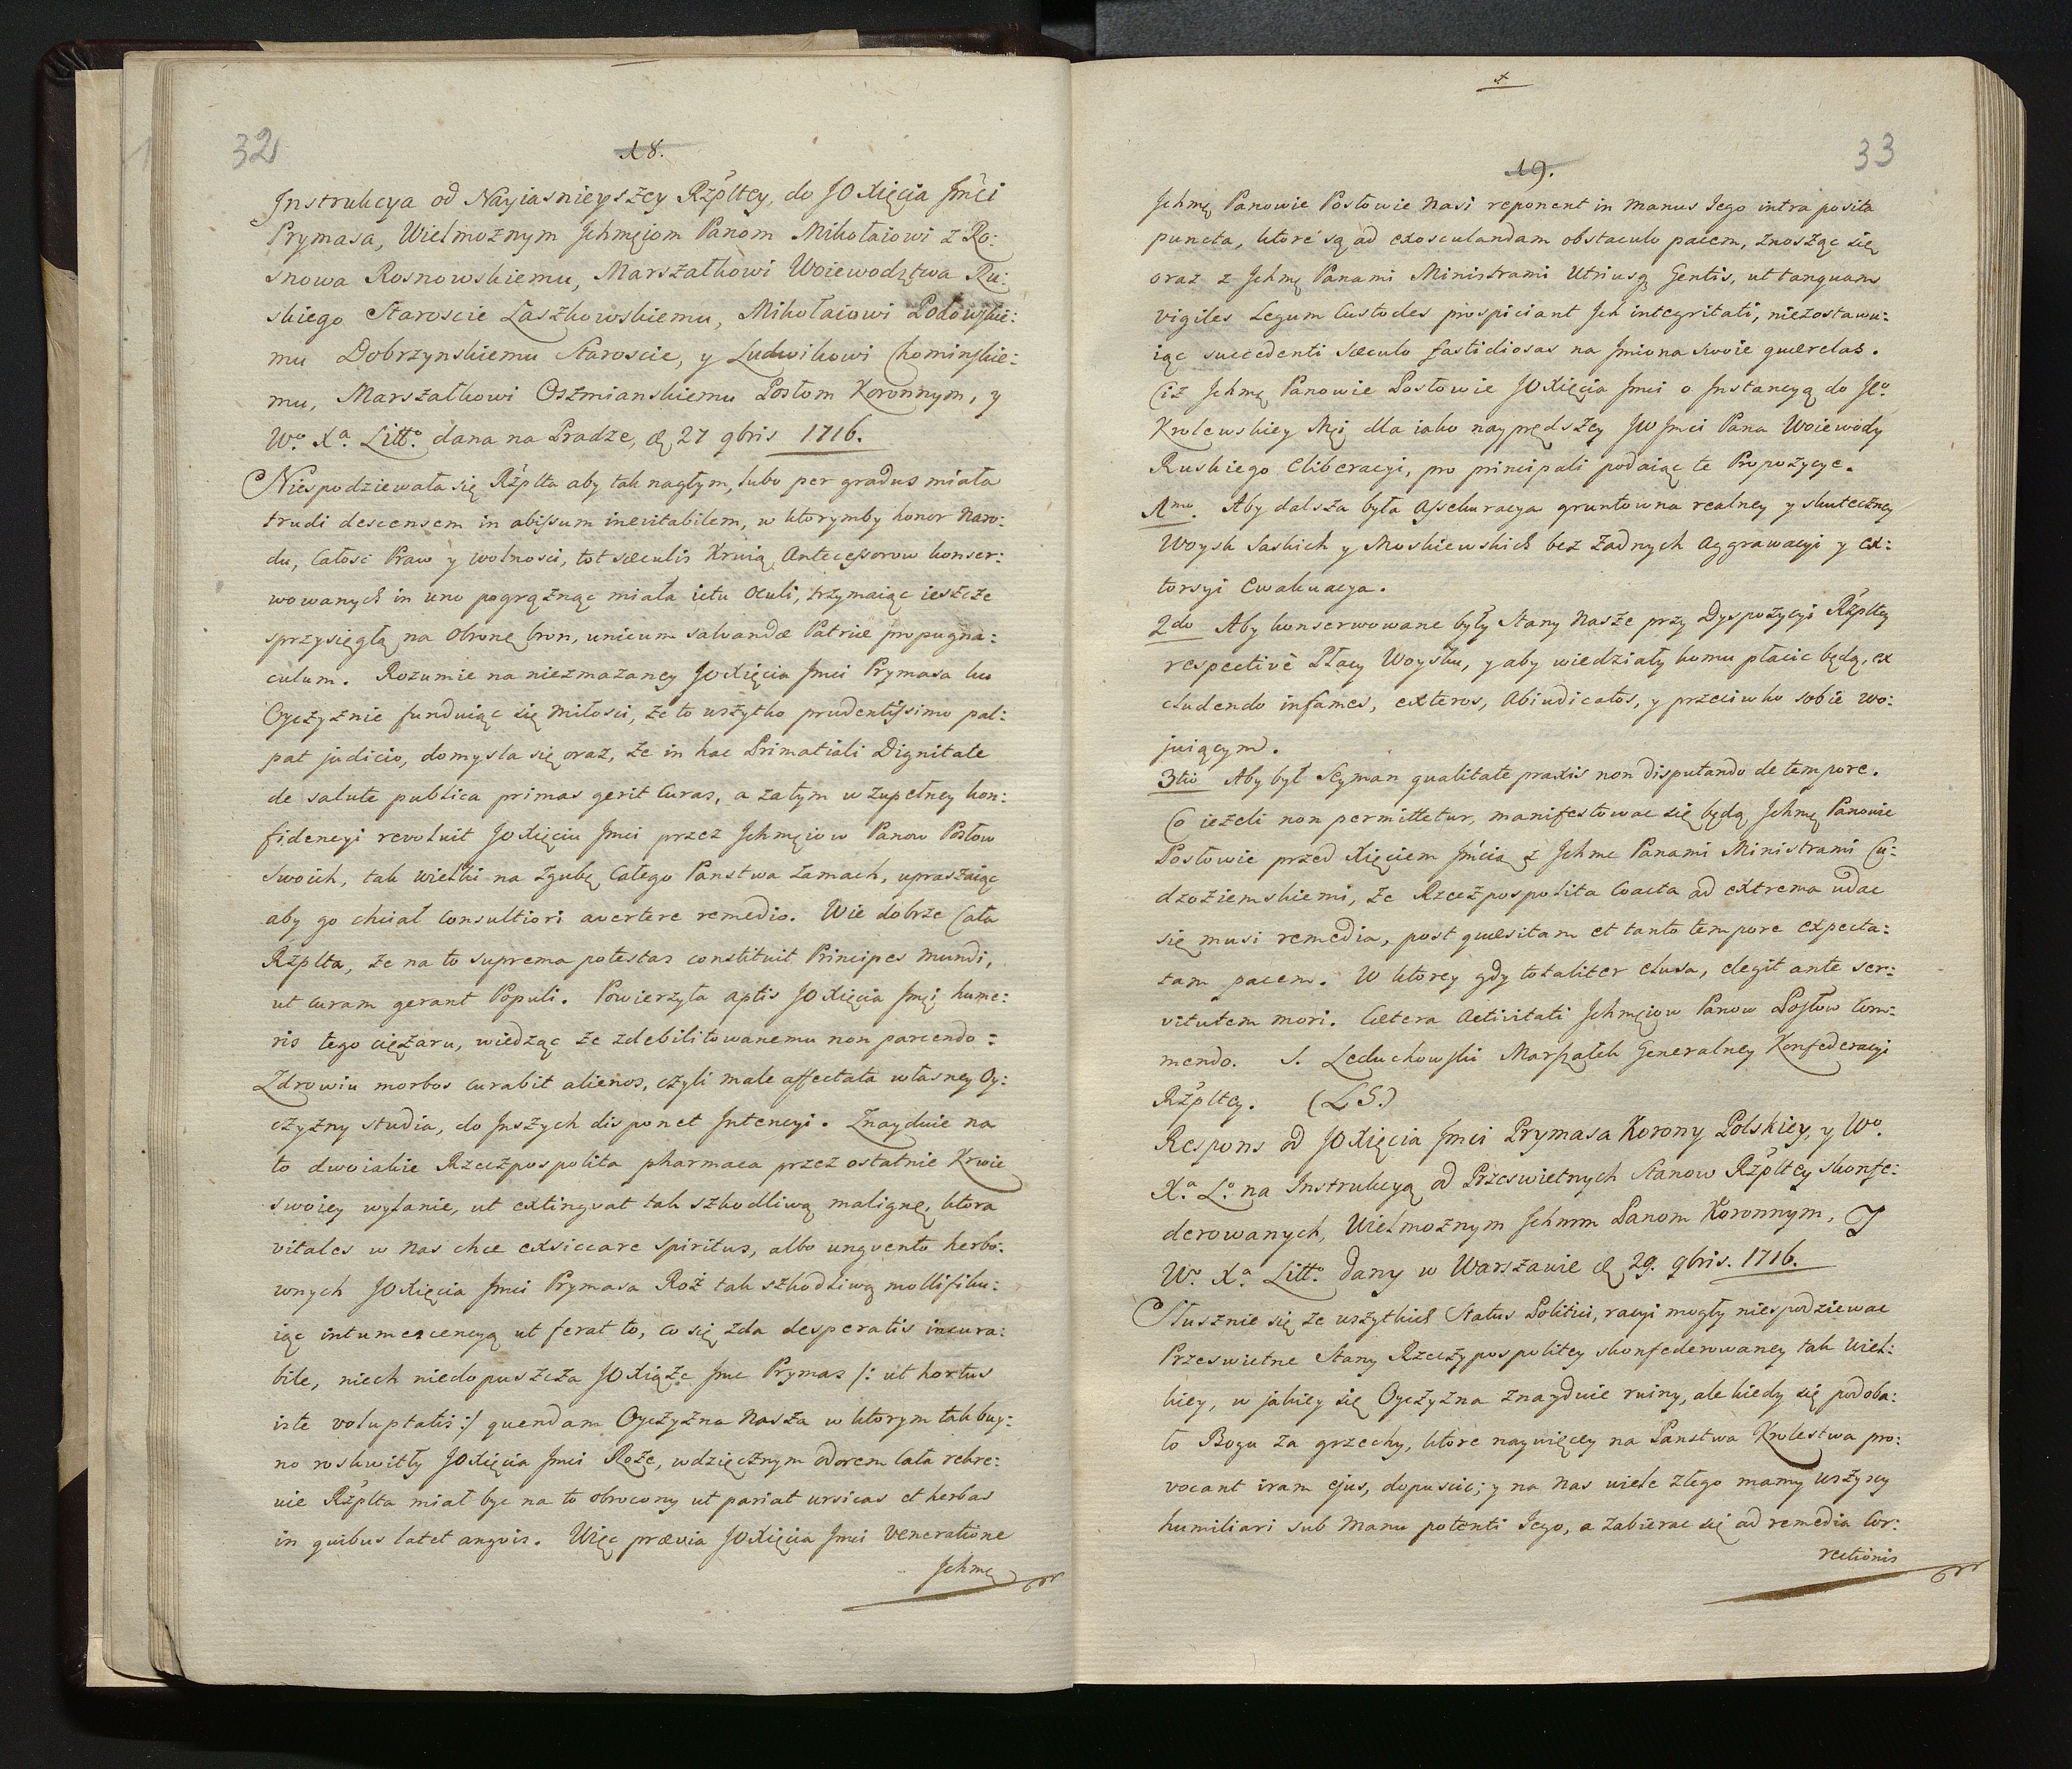 32
18.
Instrukcya od Nayiasnieyszey Rzpltey, do JO Xięcia Jmci
Prymasa, Wielmoznym Jchmęiom Panom Mikołaiowi z Ro:
snowa Rosnowskiemu, Marszałkowi Woiewodztwa Ru:
skiego Staroscie Łaszkowskiemu, Mikołaiowi Podowskie:
mu Dobrzynskiemu Staroscie, y Ludwikowi Chominskie:
mu, Marszałkowi Oszmianskiemu Posłom Koronnym, y
Wo. Xa. Litto. dana na Pradze, d. 27 9bris 1716.
Niespodziewała się Rzplta aby tak nagłym, lubo per gradus miała
trudi descensem in abissum inevitabilem, w ktorymby honor naro:
du, Całosc Praw y wolnosci, tot sæculis Krwią Antecessorow konser:
wowanych in uno pogrążnąc miała ictu oculi, trzymaiąc ieszcze
sprzysięgłą na obronę bron, unicum salvandæ Patriæ propugna:
culum. Rozumie na niezmazaney JOXięcia Jmci Prymasa ku
Oyczyznie funduiąc się miłosci, że to wszytko prudentissimo pal:
pat judicio, domysla się oraz, że in hac Primatiali Dignitate
de salute publica primas gerit curas, a zatym w zupełney kon:
fidencyi revoluit JOXięciu Jmci przez Jchmęiow Panow Posłow
swoich, tak wielki na zgubę całego Panstwa zamach, upraszaiąc
aby go chciał consultiori avertere remedio. Wie dobrze Cała
Rzplta, że na to suprema potestas constituit Principes mundi,
ut curam gerant Populi. Powierzyła aptis JOXięcia Jmęi hume:
ris tego ciężaru, wiedząc że zdebilitowanemu non parcendo:
Zdrowiu morbos curabit alienos, czyli male affectata własney Oy:
czyzny studia, do Jnszych disponet Jntencyi. Znayduie na
to dwoiakie Rzeczpospolita pharmaca przez ostatnie Krwie
swoiey wylanie, ut extingvat tak szkodliwą malignę, ktora
vitales w nas chce exsiccare spiritus, albo ungvento herbo:
wnych JOXięcia Jmci Prymasa Roż tak szkodliwą mollifiku:
iąc intumescencyą ut ferat to, co się zda desperatis incura:
bile, niech niedopuszcza JOXiąże Jmc Prymas /: ut hortus
iste voluptatis :/ quendam Oyczyzna nasza w ktorym tak buy:
no roskwitły JOXięcia Jmci Roże, wdzięcznym odorem cała rekre:
uie Rzplta miał byc na to obrocony ut pariat ursicas et herbas
in quibus latet angvis. Więc prævia JOXięcia Jmci veneratione
Jchmę
33
19.
Jchmę Panowie Posłowie nasi reponent in manus Jego intra posita
puncta, ktoré są ad exosculandam obstaculo pacem, znosząc się
oraz z Jchmę Panami Ministrami utriusq Gentis, ut tanquam
vigiles Legum Custodes prospiciant Jch integritati, niezostawu:
iąc succedenti sæculo fastidiosas na Jmiona swoie querelas.
Ciż Jchmę Panowie Posłowie JOXięcia Jmci o Jnstancyą do Jeo.
Krolewskiey Męi dla iako nayprędszey JW Jmci Pana Woiewody
Ruskiego Eliberacyi, pro principali podaiąc te Propozycye.
1mo. Aby dalsza była Assekuracya gruntowna realney y skuteczney
Woysk Saskich y Moskiewskich bez żadnych aggrawacyi y ex:
torsyi Ewakuacya.
2do Aby konserwowane były Stany nasze przy Dyspozycyi Rzpltey
respective Płacy Woysku, y aby wiedziały komu płacic będą, ex
cludendo infames, exteros, abiudicatos, y przeciwko sobie wo:
juiącym.
3tio Aby był Seyman qualitate praxis non disputando de tempore.
Co ieżeli non permittetur, manifestowac się będą Jchmę Panowie
Posłowie przed Xięciem Jmcią z Jchmc Panami Ministrami Cu:
dzoziemskiemi, że Rzeczpospolita coacta ad extrema udac
się musi remedia, post quæsitam et tanto tempore expecta:
tam pacem. W ktorey gdy totaliter elusa, elegit ante ser:
vitutem mori. Cætera Activitati Jchmęiow Panow Posłow Com:
mendo. S. Leduchowski Marszałek Generalney Konfederacyi
Rzpltey. (L S.)
Respons od JOXięcia Jmci Prymasa Korony Polskiey, y Wo.
Xa. Lo. na Instrukcyą od Przeswietnych Stanow Rzpltey skonfe:
derowanych, Wielmoznym Jchmm Panom Koronnym, J
Wo. Xa Litto. dany w Warszawie d. 29. 9bris. 1716.
Słusznie się ze wszytkich Status Politici, racyi mogły niespodziewac
Przeswietne Stany Rzeczypospolitey skonfederowaney tak wiel:
kiey, w jakiey się Oyczyzna znayduie ruiny, ale kiedy się podoba:
ło Bogu za grzechy, ktore naywięcey na Panstwa Krolestwa pro:
vocant iram ejus, dopuscic; y na nas wiele złego mamy wszyscy
humiliari sub manu potenti Jego, a zabierac się ad remedia Cor:
rectionis